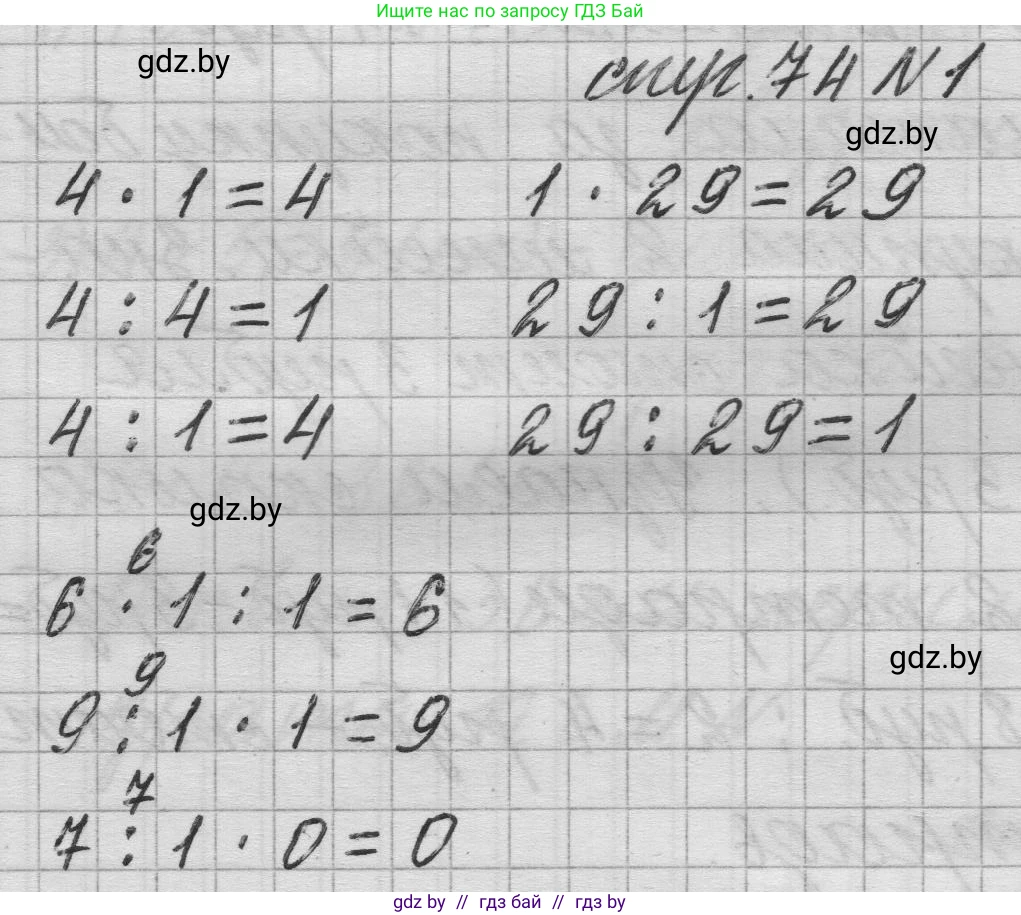 Ищите нас по запросу ГДЗ Бай
gdz.by
стр. 74 N 1
gdz.by
4 · 1 = 4
1 · 29 = 29
4 : 4 = 1
29 : 1 = 29
4 : 1 = 4
29 : 29 = 1
gdz.by
6
6 · 1 : 1 = 6
gdz.by
9
9 : 1 · 1 = 9
7
7 : 1 · 0 = 0
gdz.by // гдз бай // gdz.by